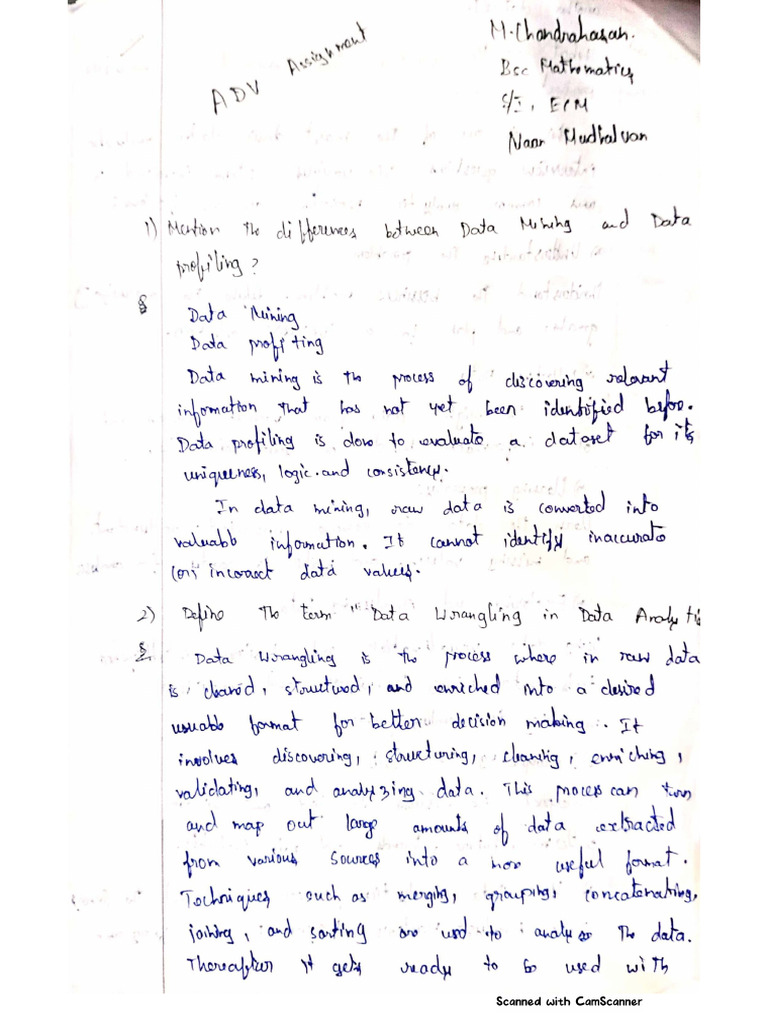 ADV Assignment
M. Chandrahasan.
Bsc Mathematics
S/I, ECM
Naan Mudhalvan
1) Mention the differences between Data Mining and Data
profiling?
Data Mining
Data profiting
Data mining is the process of discovering relevant
information that has not yet been identified before.
Data profiling is done to evaluate a dataset for its
uniqueness, logic and consistency.
In data mining, raw data is converted into
valuable information. It cannot identify inaccurate
(or) incorrect data values.
2) Define the term "Data Wrangling in Data Analytis
Data Wrangling is the process where in raw data
is cleaned, structured, and enriched into a desired
usuable format for better decision making. It
involves discovering, structuring, cleaning, enriching,
validating, and analyzing data. This process can turn
and map out large amounts of data extracted
from various sources into a more useful format.
Techniques such as merging, grouping, concatenating,
joining, and sorting are used to analyze the data.
Thereafter it gets ready to be used with
Scanned with CamScanner